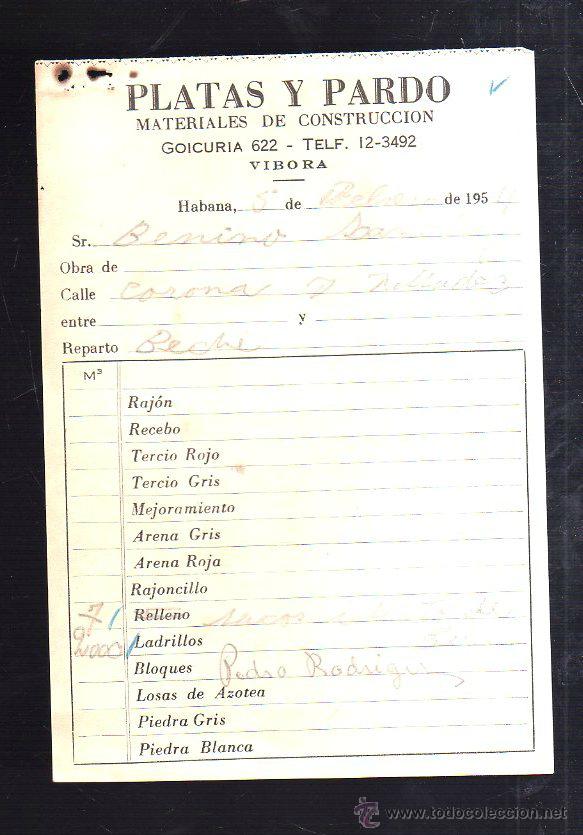 PLATAS Y PARDO
MATERIALES DE CONSTRUCCION
GOICURIA 622 - TELF. 12-3492
VIBORA
Habana, 5 de de 1954
Sr. Benino
Obra de
Calle Corona y
entre y
Reparto
M³
Rajón
Recebo
Tercio Rojo
Tercio Gris
Mejoramiento
Arena Gris
Arena Roja
Rajoncillo
7 Relleno sacos
2000 Ladrillos
Bloques Pedro Rodriguez
Losas de Azotea
Piedra Gris
Piedra Blanca
todocoleccion
www.todocoleccion.net